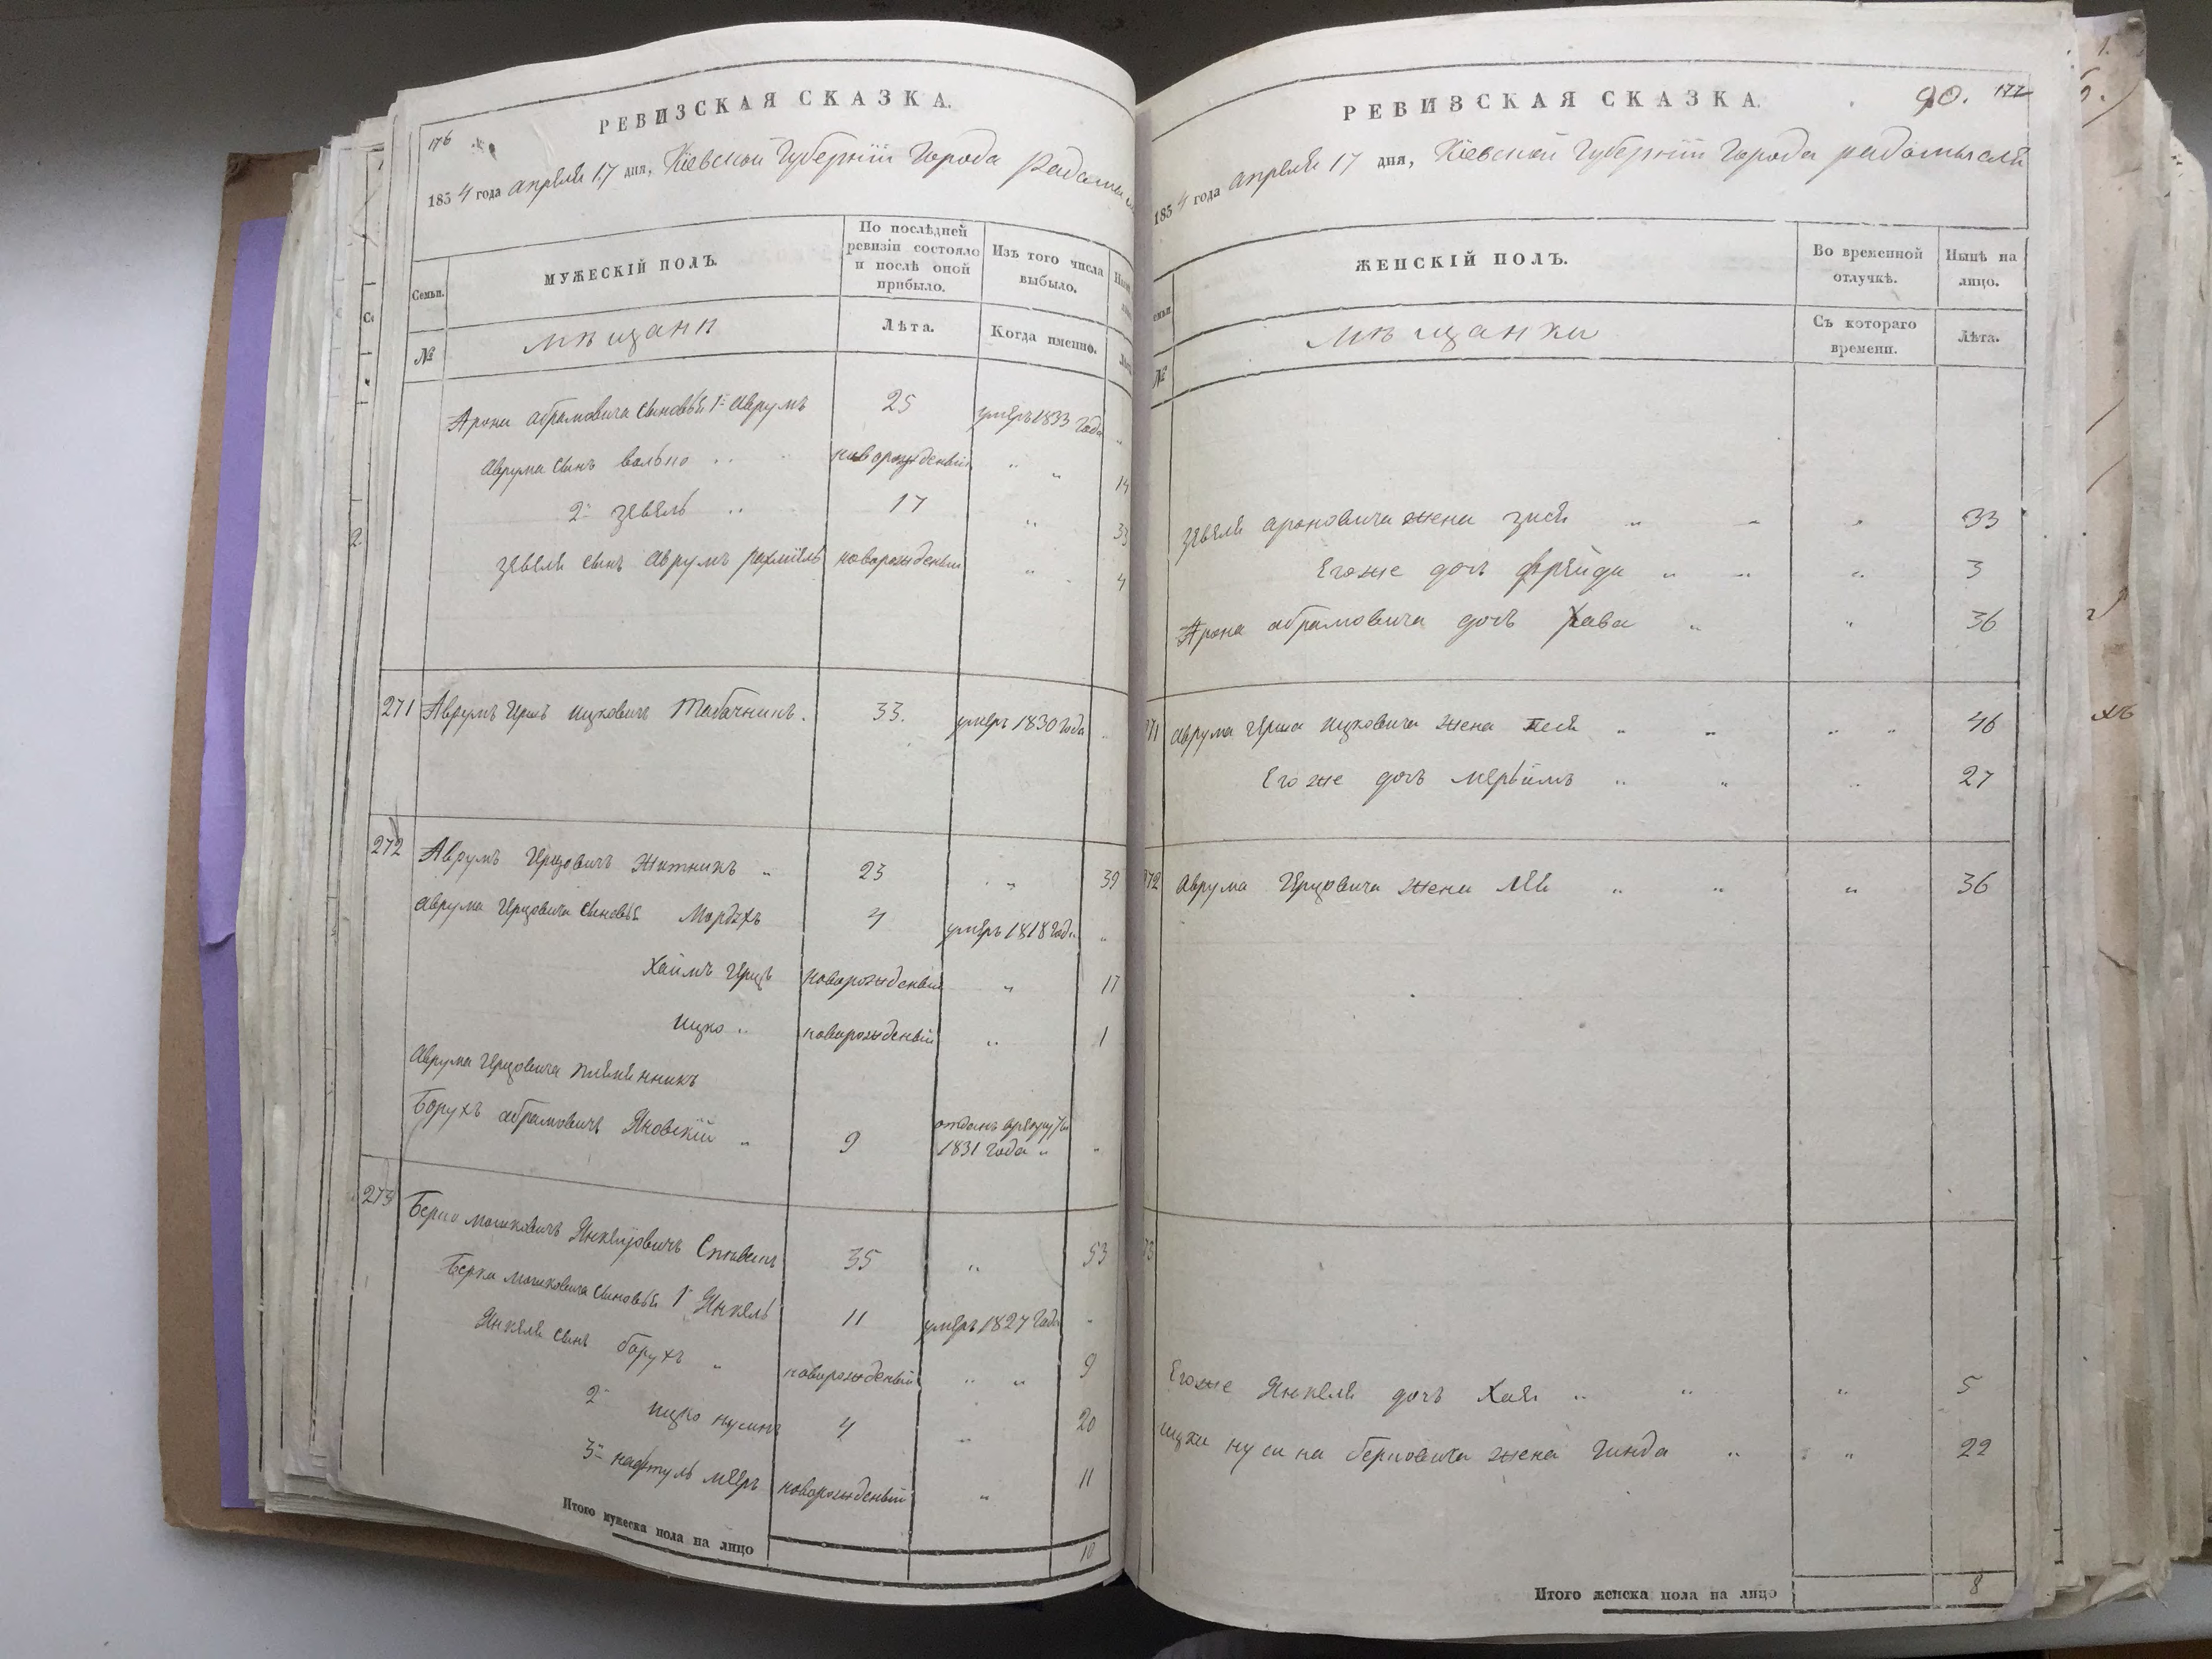 176
РЕВИЗСКАЯ СКАЗКА.
1834 года апреля 17 дня, Кіевской Губерніи Города Радомы
Семьи.
МУЖЕСКІЙ ПОЛЪ.
По послѣдней ревизіи состояло и послѣ оной прибыло.
Изъ того числа выбыло.
№
мѣщани
Лѣта.
Когда именно.
Арона абрамовича сыновья 1й Аврумъ 25 умеръ 1833 Года "
Аврума сынъ волько .. новорожденный " " 14
2й зевель .. 17 " 33
зевеля сынъ Аврумъ рахміель новорожденный " 4
271 Аврумъ Гершъ ицковичъ Табачникъ. 33. умеръ 1830 года
272 Аврумъ Герцовичъ Житникъ " 23 " 39
Аврума Герцовича сыновья Мордухъ 4 умеръ 1818 Года "
Хаимъ Герцъ новорожденный " 17
ицко .. новорожденный " 1
Аврума Герцовича племенникъ
Борухъ абрамовичъ Яновскій " 9 отданъ врекруты 1831 Года " "
273 Берко мошковичъ Янкелювичъ 35 " 53
Берка мошковича сыновья 1й Янкель 11 умеръ 1827 Года "
Янкеля сынъ борухъ " новорожденный " " 9
2й ицко нусинъ 4 " 20
3й нафтуль мееръ новорожденный " 11
Итого мужеска пола на лицо 10
90. 177
РЕВИЗСКАЯ СКАЗКА.
1834 года апреля 17 дня, Кіевской Губерніи Города радомысля
ЖЕНСКІЙ ПОЛЪ.
Во временной отлучкѣ.
Нынѣ на лицо.
№
мѣщанки
Съ котораго времени.
Лѣта.
зевеля ароновича жена зися " " " 33
Егоже дочь фрейда " " " 3
Арона абрамовича дочь Хава " " 36
271 аврума Герша ицковича жена песя " " " " 46
Егоже дочь мерьямъ " " " 27
272 аврума Герцовича жена лея " " " 36
273
Егоже Янкеля дочь Хая " " " 5
ицка нусина берковича жена Гинда " " 22
Итого женска пола на лицо 8